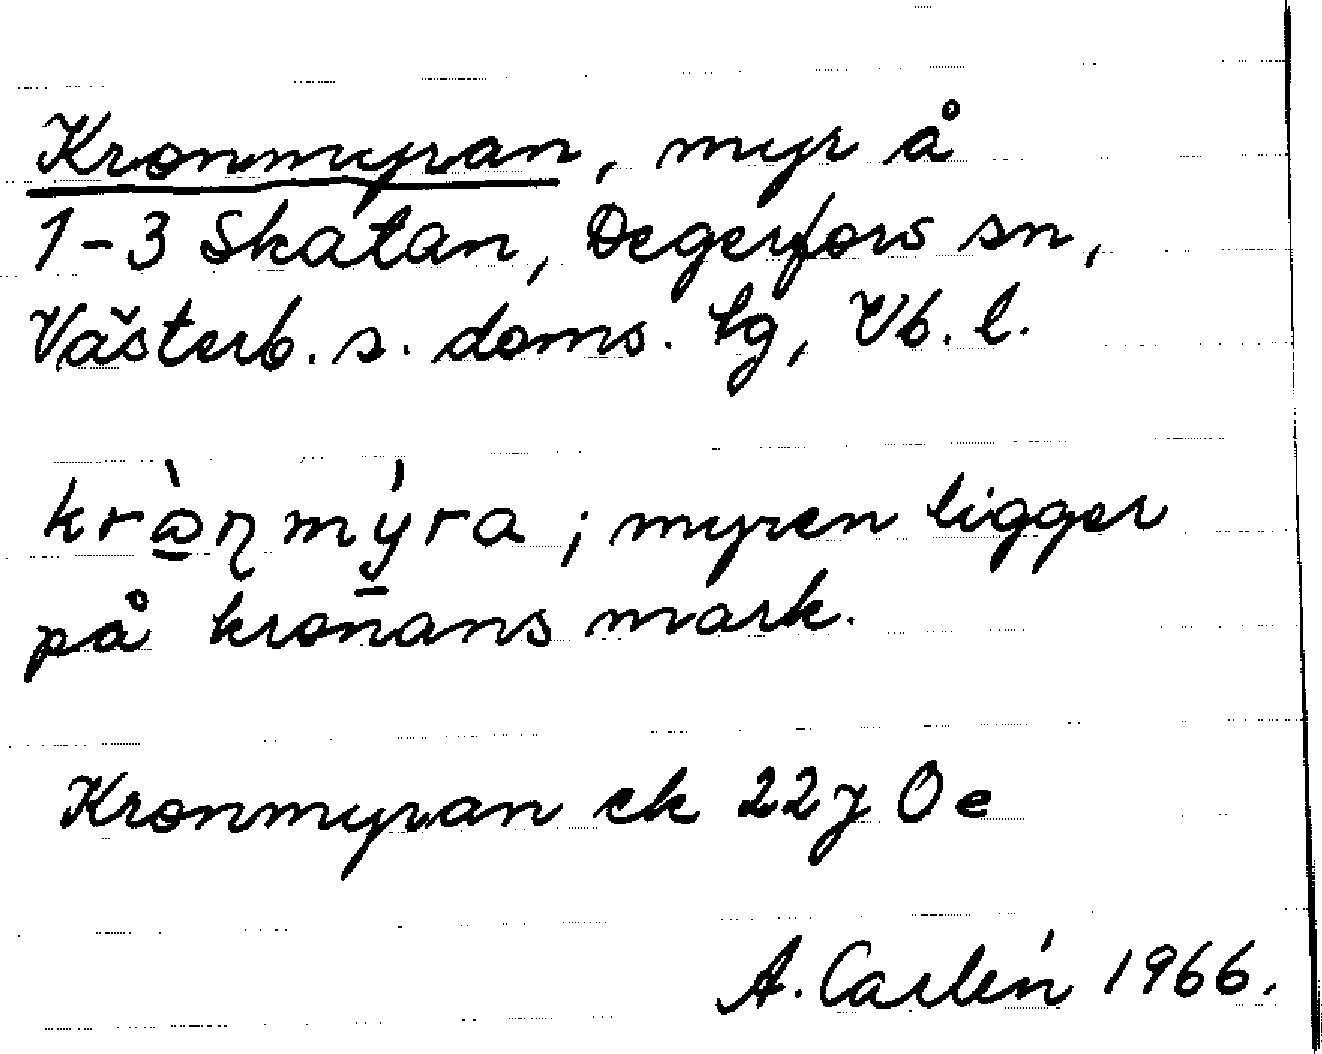 Kronmyran, myr å
1-3 Skatan, Degerfors sn,
Västerb. s. doms. tg, Vb. l.
krò̠ɳmý̠ra; myren ligger
på kronans mark.
Kronmyran ek 22 J 0 e
A. Carlén 1966.